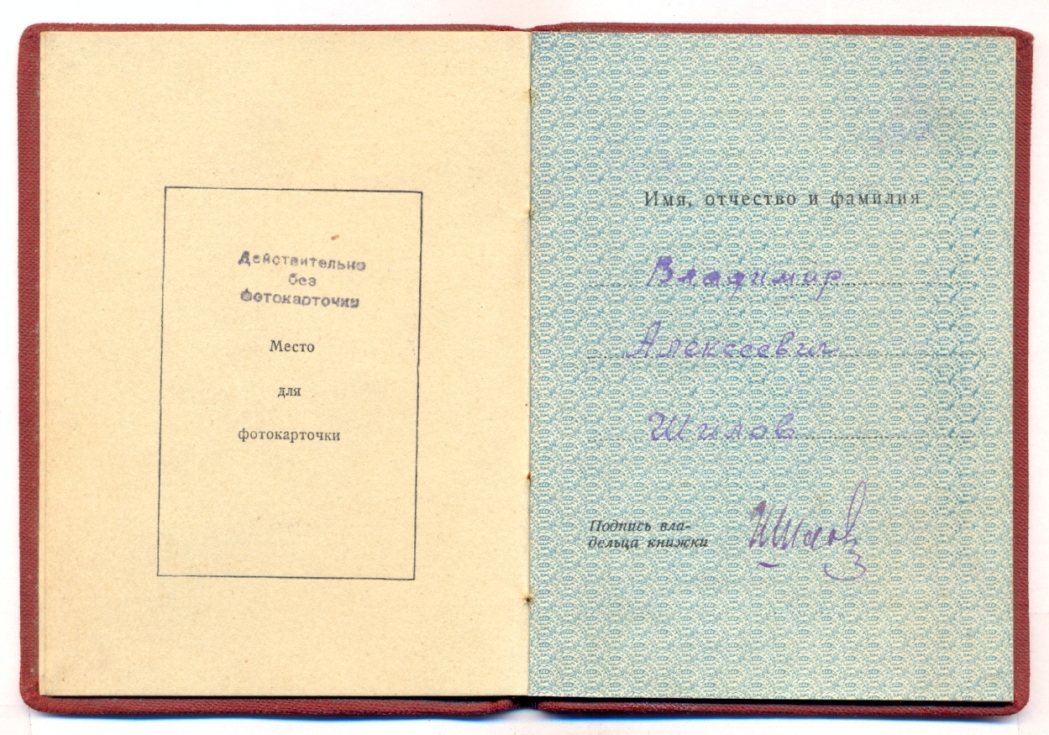 Действительно
без
фотокарточки
Место
для
фотокарточки
Имя, отчество и фамилия
Владимир
Алексеевич
Шилов
Подпись вла-
дельца книжки
Шилов